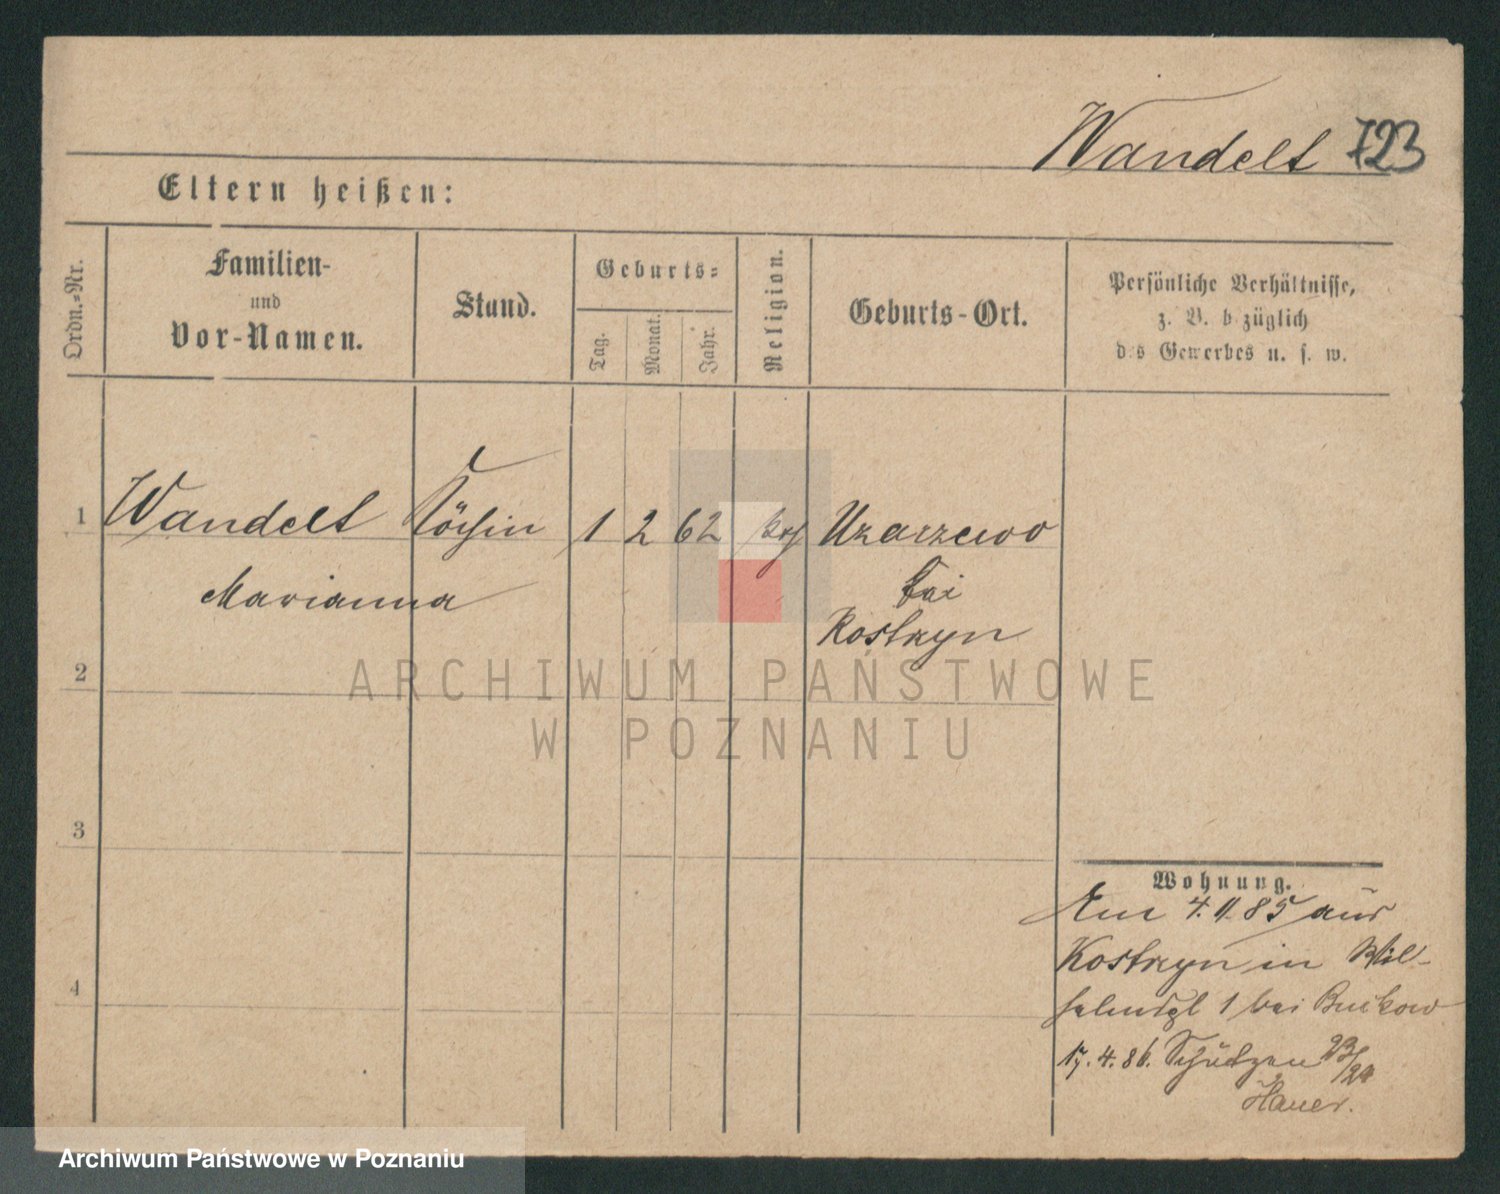 Wandelt 723
Eltern heißen:
Ordn.=Nr.
Familien-
und
Vor-Namen.
Stand.
Geburts=
Tag.
Monat.
Jahr.
Religion.
Geburts-Ort.
Persönliche Verhältnisse,
z. B. bezüglich
des Gewerbes u. s. w.
1 Wandelt Köchin 1 2 62 Uzarzewo
Marianna bei
Kostrzyn
2
ARCHIWUM PAŃSTWOWE
W POZNANIU
3
Wohnung.
Am 4. 11. 85 aus
Kostrzyn in Wil-
helmspl 1 bei Buckow
4
17. 4. 86. Schützen 23/24
Hauer.
Archiwum Państwowe w Poznaniu